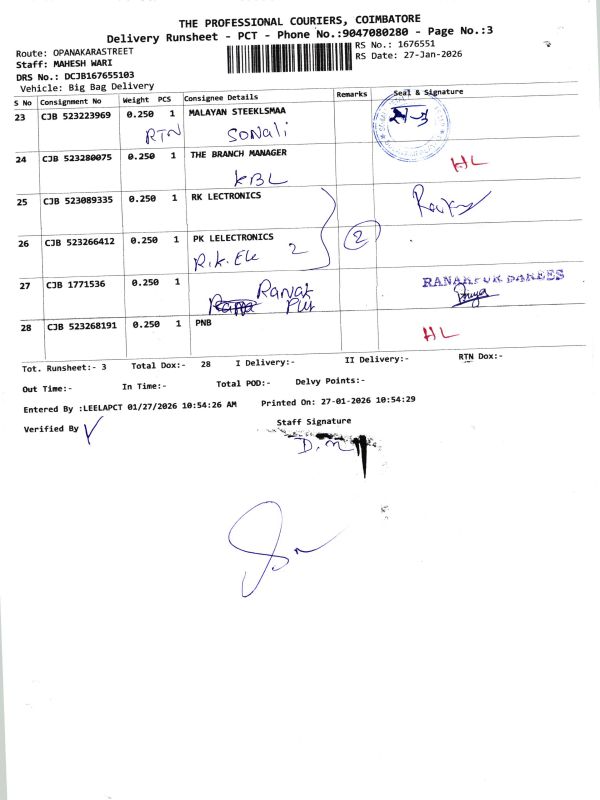 THE PROFESSIONAL COURIERS, COIMBATORE
Delivery Runsheet - PCT - Phone No.:9047080280 - Page No.:3
Route: OPANAKARASTREET
RS No.: 1676551
Staff: MAHESH WARI
RS Date: 27-Jan-2026
DRS No.: DCJB167655103
Vehicle: Big Bag Delivery
S No Consignment No Weight PCS Consignee Details Remarks Seal & Signature
23 CJB 523223969 0.250 1 MALAYAN STEEKLSMAA
RTN Sonali
24 CJB 523280075 0.250 1 THE BRANCH MANAGER
KBL HL
25 CJB 523089335 0.250 1 RK LECTRONICS
26 CJB 523266412 0.250 1 PK LELECTRONICS 2
R.K. Ele 2
27 CJB 1771536 0.250 1
RANAKPUR SAREES
28 CJB 523268191 0.250 1 PNB
HL
Tot. Runsheet:- 3 Total Dox:- 28 I Delivery:- II Delivery:- RTN Dox:-
Out Time:- In Time:- Total POD:- Delvy Points:-
Entered By :LEELAPCT 01/27/2026 10:54:26 AM Printed On: 27-01-2026 10:54:29
Verified By
Staff Signature